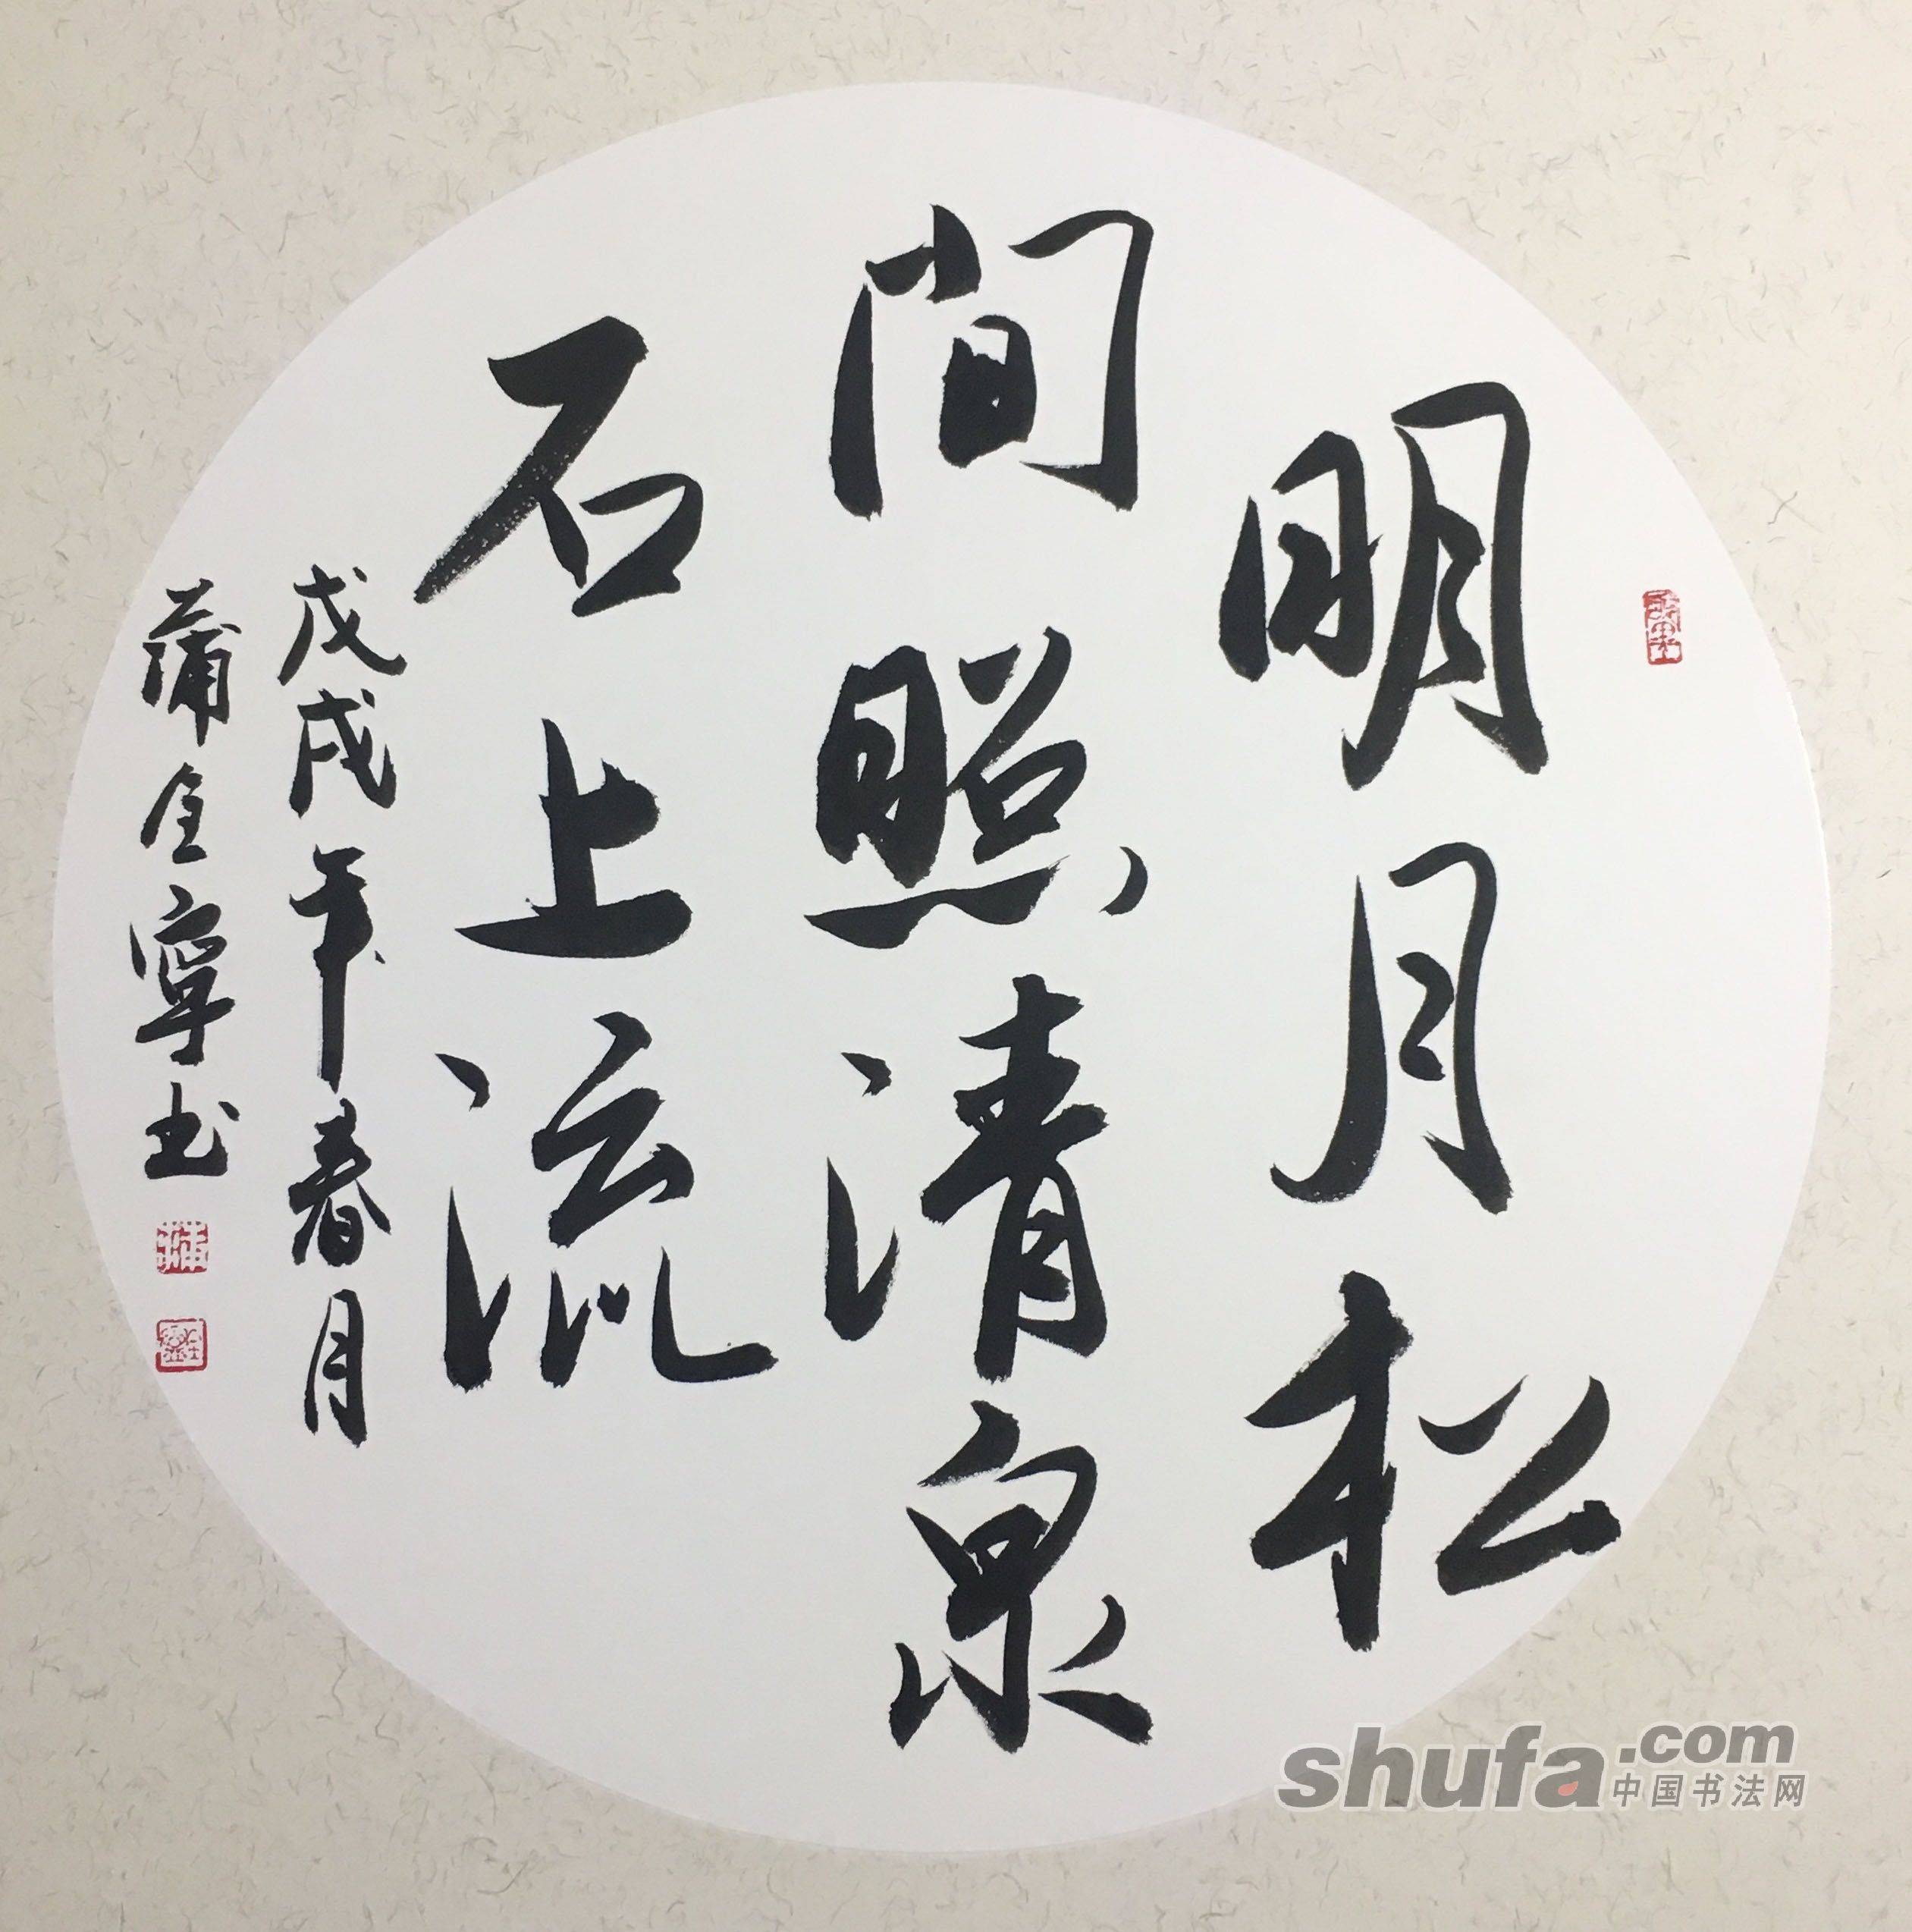 明月松
间照清泉
石上流
戊戌年春月
蒲全寧书
shufa.com
中国书法网